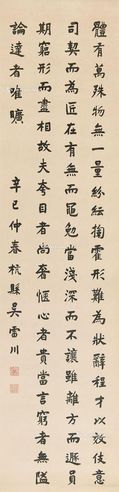 體有萬殊物無一量紛紜揮霍形難為狀辭程才以效伎意
司契而為匠在有無而僶勉當淺深而不讓雖離方而遯員
期窮形而盡相故夫夸目者尚奢愜心者貴當言窮者無隘
論達者唯曠
辛巳仲春杭縣吳雷川